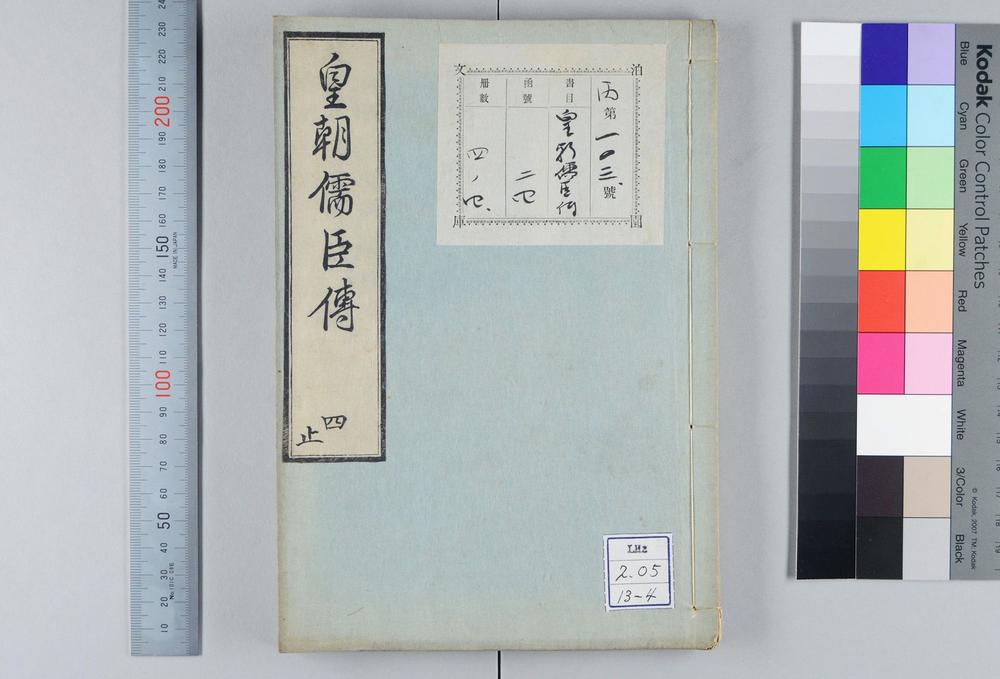 皇朝儒臣傳
四
止
泊園文庫
丙第一〇三號
書目
皇朝儒臣傳
函號
冊數
LH2
2.05
13-4
Kodak Color Control Patches
Blue
Cyan
Green
Yellow
Red
Magenta
White
3/Color
Black
© Kodak, 2007 TM: Kodak
240
230
220
210
200
190
180
170
160
150
140
130
120
110
100
90
80
70
60
50
40
30
20
10
MADE IN JAPAN